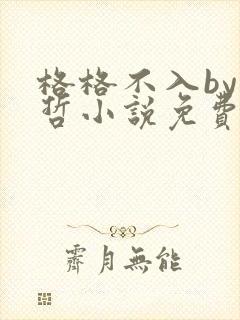 格格不入by
哲小說免費
霽月無能